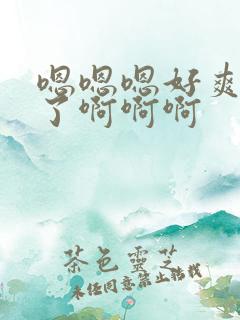 嗯嗯嗯好爽
了啊啊啊
茶色靈芝
未经同意禁止转载